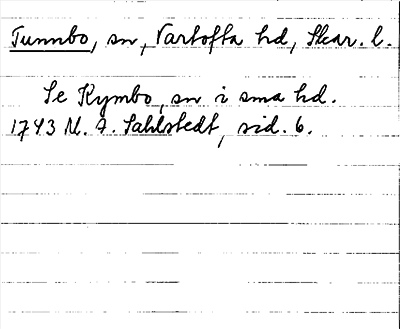 Tunnbo, sn, Vartofta hd, Skar. l.
Se Kymbo, sn i sma hd.
1743 M. A. Sahlstedt, sid. 6.